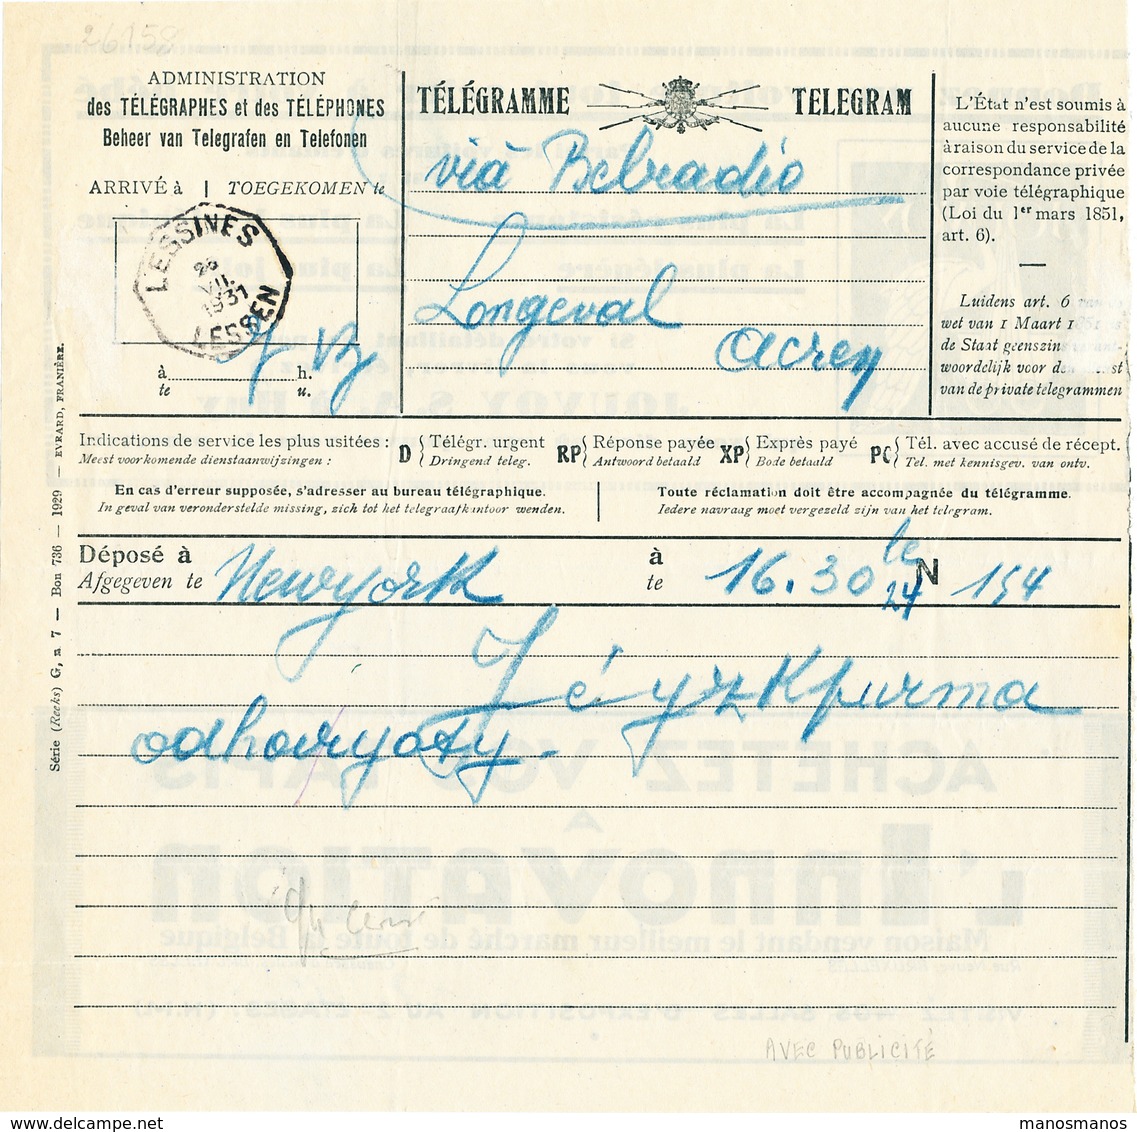 26158
ADMINISTRATION
des TÉLÉGRAPHES et des TÉLÉPHONES
Beheer van Telegrafen en Telefonen
ARRIVÉ à | TOEGEKOMEN te
LESSINES
VII.
1931
LESSEN
à
te
h.
u.
TÉLÉGRAMME TELEGRAM
via Belradio
Longeval
acren
L'État n'est soumis à
aucune responsabilité
à raison du service de la
correspondance privée
par voie télégraphique
(Loi du 1er mars 1851,
art. 6).
Luidens art. 6 van de
wet van 1 Maart 1851 is
de Staat geenszins verant-
woordelijk voor den dienst
van de private telegrammen
Indications de service les plus usitées :
Meest voorkomende dienstaanwijzingen :
D { Télégr. urgent
Dringend teleg.
RP { Réponse payée
Antwoord betaald
XP { Exprès payé
Bode betaald
PC { Tél. avec accusé de récept.
Tel. met kennisgev. van ontv.
En cas d'erreur supposée, s'adresser au bureau télégraphique.
In geval van veronderstelde missing, zich tot het telegraafkantoor wenden.
Toute réclamation doit être accompagnée du télégramme.
Iedere navraag moet vergezeld zijn van het telegram.
Déposé à
Afgegeven te
Newyork
à
te
16.30 le 24 N 154
yzkpurma
odharyoty.
Série (Reeks) G, n 7 — Bon 736 — 1929 — EVRARD, FRANIÈRE.
ACHETEZ VOS TAPIS
A
L'INNOVATION
Maison vendant le meilleur marché de toute la Belgique
Rue Neuve, BRUXELLES
AVEC PUBLICITÉ
manosmanos